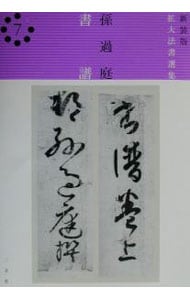 新装版
拡大法書選集
7
孫過庭
書譜
書譜卷上
吳郡孫過庭撰